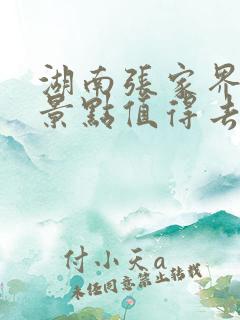 湖南張家界
景點值得去
付小天a
未经同意禁止转载